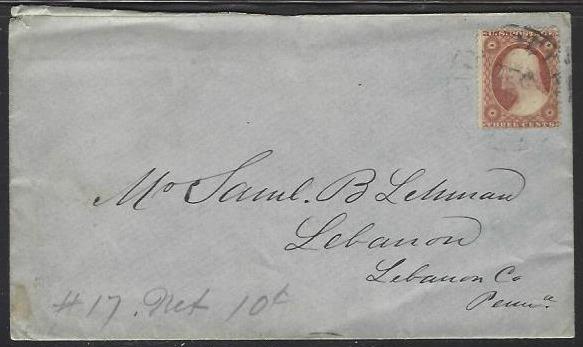 U.S. POSTAGE
THREE CENTS
Mr Saml. B Lehman
Lebanon
Lebanon Co
Pennᵃ
#17. Net 10¢